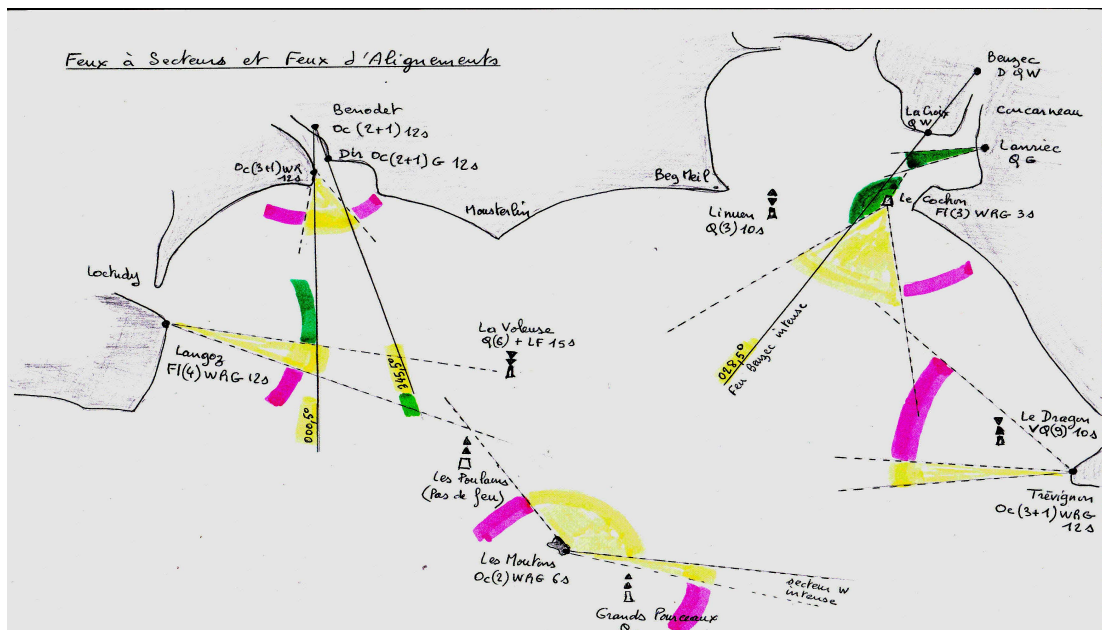 Feux à Secteurs et Feux d'Alignements
Benodet
Oc (2+1) 12s
Dir Oc(2+1) G 12s
Oc(3+1) WR
12s
Mousterlin
Beg Meil
Linuen
Q(3) 10s
Beuzec
D QW
La Croix
QW
Concarneau
Lanriec
QG
Le Cochon
Fl(3) WRG 3s
Loctudy
Langoz
Fl(4) WRG 12s
La Voleuse
Q(6) + LF 15s
000,5°
345,5°
028,5°
Feu Beuzec intense
Les Poulains
(Pas de feu)
Les Moutons
Oc(2) WRG 6s
Grands Pourceaux
Q
secteur W
intense
Le Dragon
VQ(9) 10s
Trévignon
Oc(3+1) WRG
12s